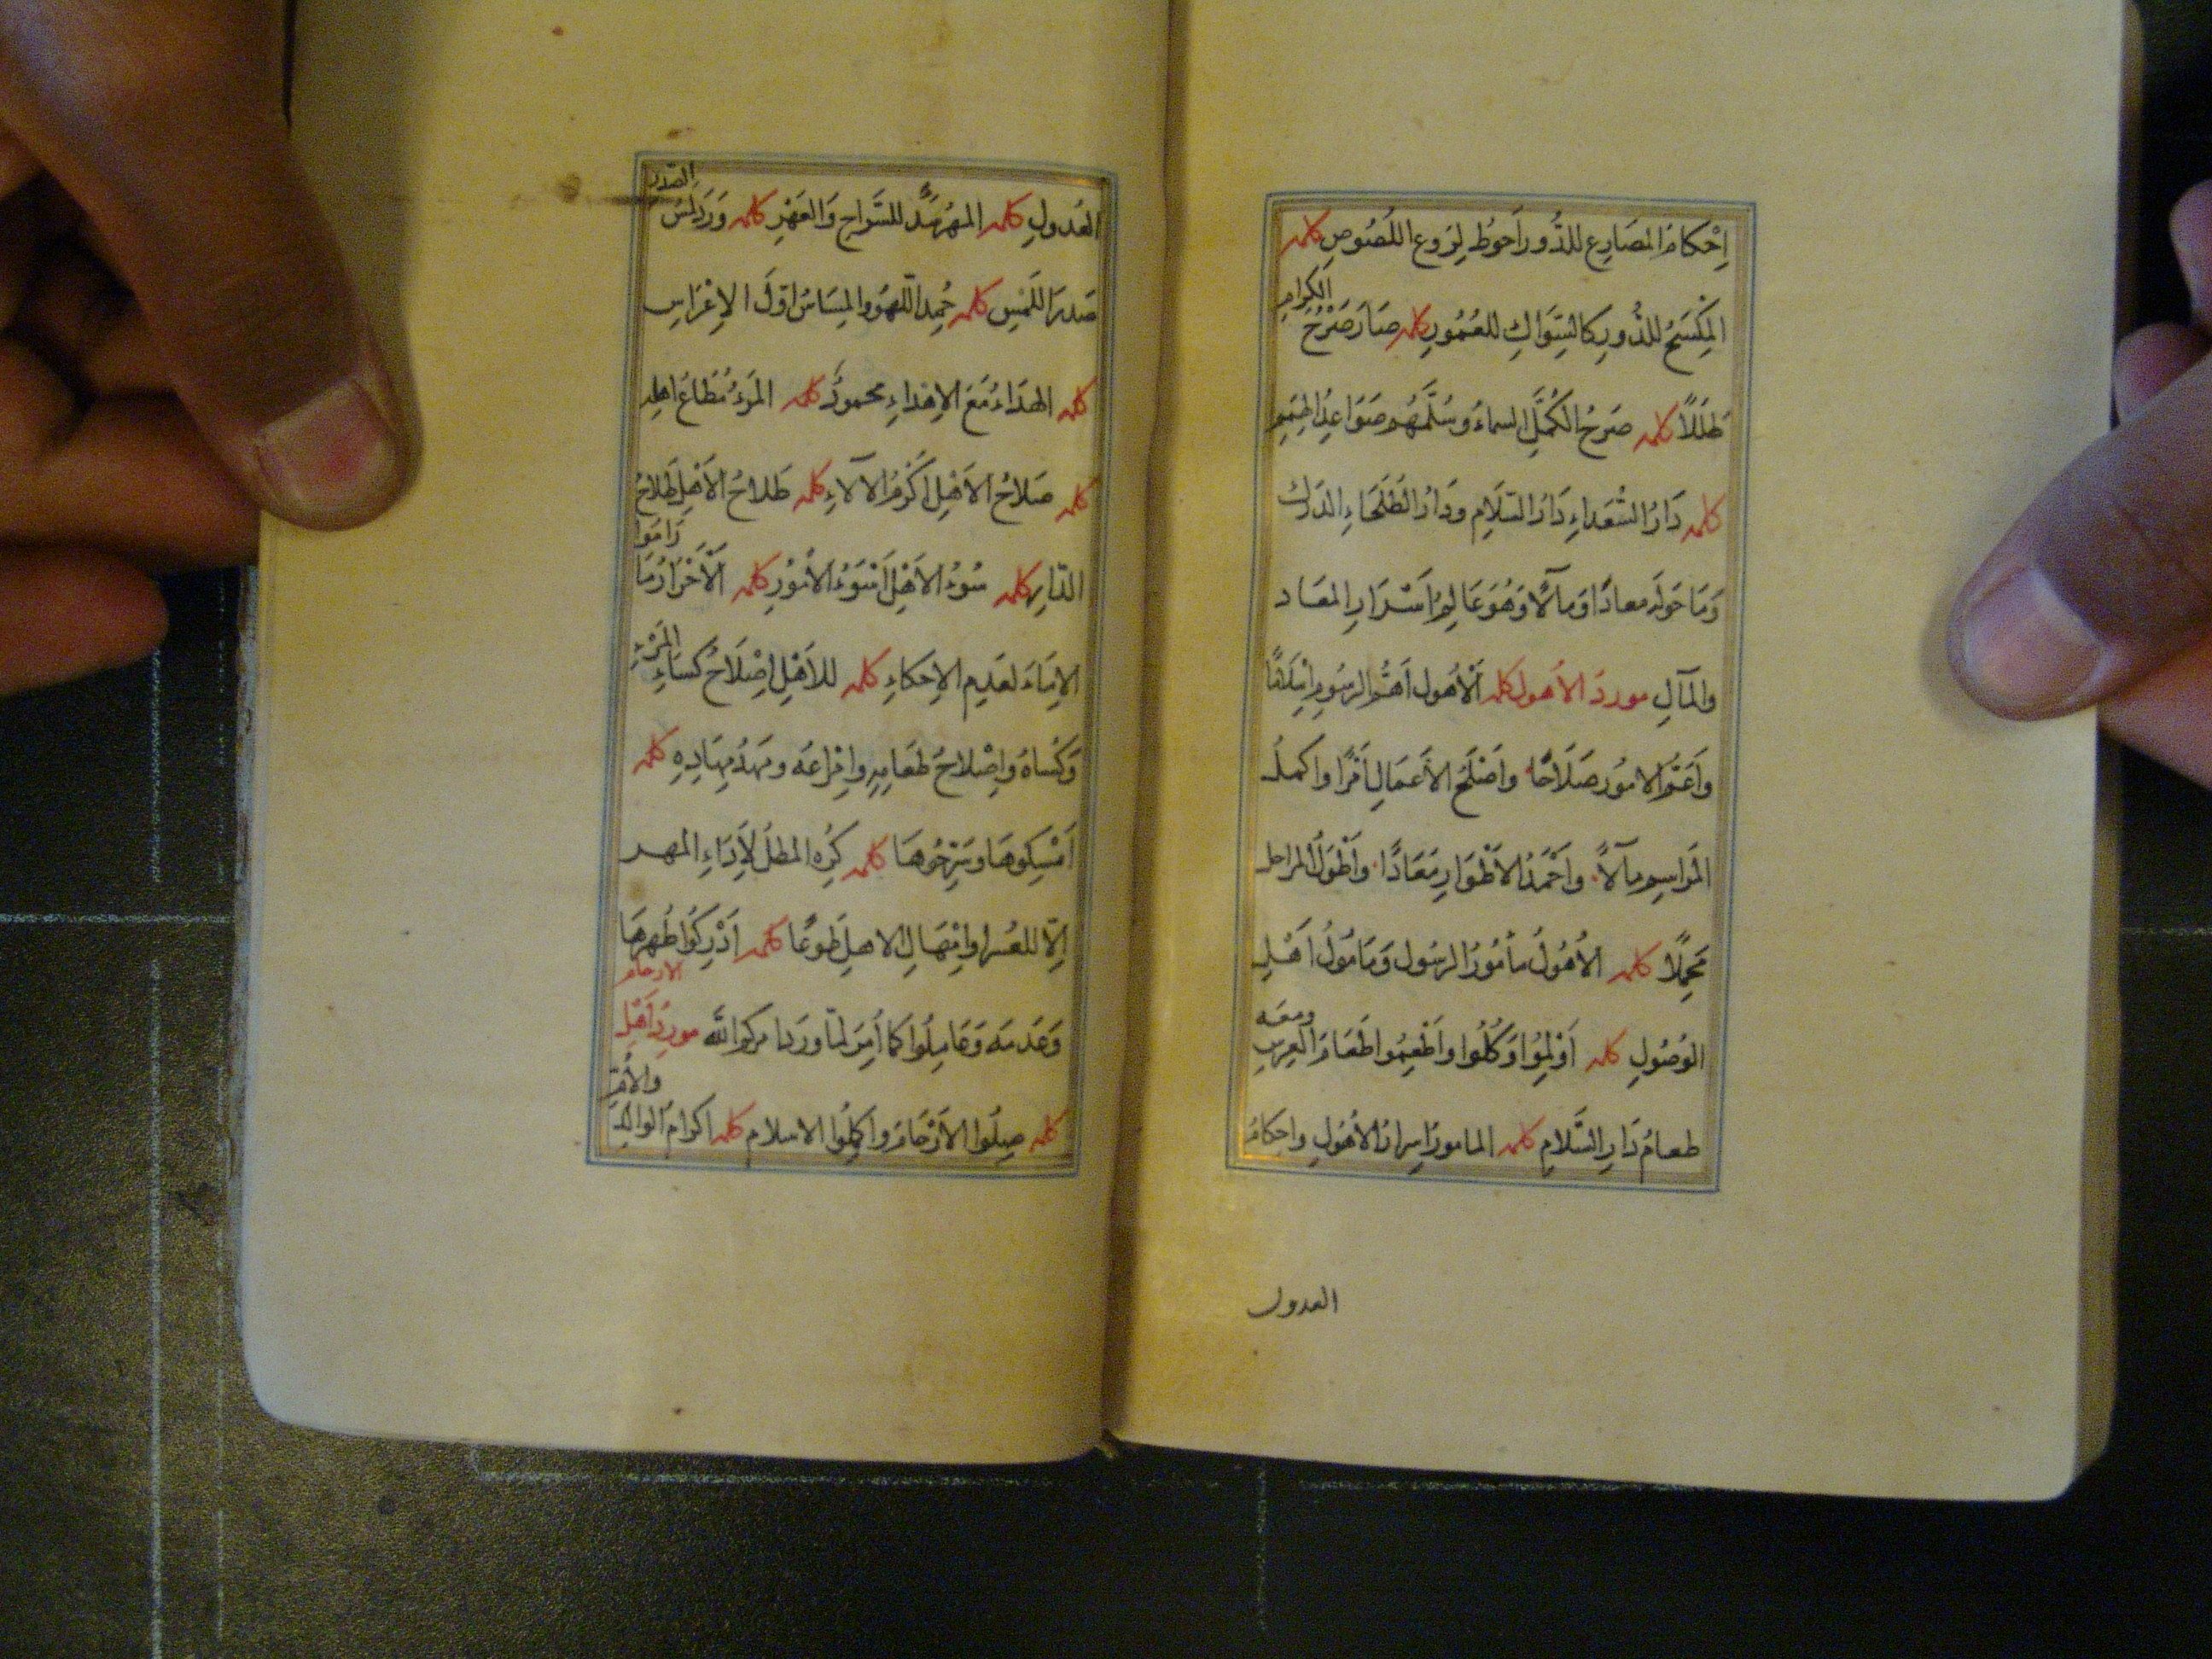 اِحْكَامُ المَصَارِعِ للدُّورِ اَحوَطُ لِرَوعِ اللُصُوصِ كلمه
المِكْسَحُ للدُّورِ كالسِّوَاكِ للعُمُورِ كلمه صَارَ صَرْحُ الكرام
طَلَلاً كلمه صَرحُ الكُمَّلِ السماءُ وسُلَّمُهُم صَوَاعِدُ الهِمَمِ
كلمه دَارُ السُّعَداءِ دَارُ السَّلَامِ ودَارُ الطُّلَحَاءِ الدَرَكُ
وَمَا حَولَه معادًا وَمآلًا وَهُوَ عَالِمُ اَسْرَارِ المعَاد
والمآلِ موردُ الأهول كلمه اَلأهُول اَهَمُّ الرسُومِ اِسْلَامًا
وَاَعَمُّ الامُورِ صَلَاحًا وَاَصْلَحُ الأعمَالِ اَمْرًا واكملُ
المَرَاسِمِ مآلاً وَاَحْمَدُ الاَطْوَارِ مَعَادًا وَاَطْوَلُ المراحل
مَحْمِلًا كلمه الأُهُولُ مأمُورُ الرسُول وَمَامُولُ اَهْلِ
الوُصُولِ كلمه اَوْلِمُوا وَكُلُوا وَاَطْعِمُوا طَعَامَ العِرسِ ومعَه
طعامُ دَارِ السَّلَامِ كلمه المامورُ اِسرارُ الأهُولِ واحكامُ
العدول
العُدولِ كلمه المهرُ مَمَدٌّ للسَّوَاحِ وَالعَهْرِ كلمه وَرَدَ لمسُ الصدر
صَدرَ اللَمْسِ كلمه حُمِدَ اللَهوُ والمِسَاسُ اوّلَ الاِعْرَاسِ
كلمه الهدَاءُ مَعَ الاِهدَاءِ محمودٌ كلمه المَرءُ مُطَاعُ اهلِه
كلمه صَلَاحُ الأَهْلِ اَكْرَمُ الآلاءِ كلمه طَلاحُ الأَهْلِ طَلاحُ
الدّارِ كلمه سُوءُ الأَهْلِ اَسْوَءُ الأُمُوْرِ كلمه اَلأَحْرَارُ مَا رَامَوا
الاِمَاءَ لعَدِمِ الاِحكاءِ كلمه للاَهْلِ اِصْلَاحُ كسَاءِ المَرْءِ
وَكُسَاهُ وَاِصْلاحُ طعَامِهِ وَاِمْرَاعه ومَهدُ مِهَادِهِ كلمه
اَمْسِكوهَا وسَرِّحُوهَا كلمه كُرِهَ المطلُ لأَدَاءِ المهر
اِلّا للعُسرِ اوامْهَالِ الاهلِ طَوعًا كلمه اَدْرِكُوا طُهرهَا
وَعَدمَه وَعَامِلُوا كما اُمِرَ لمّا ورد امركم الله موردُ اَهْلِ الارحام
كلمه صِلُوا الأَرْحَامَ وَاَكمِلُوا الاسلام كلمه اكرامُ الوالِدِ والاُمِّ